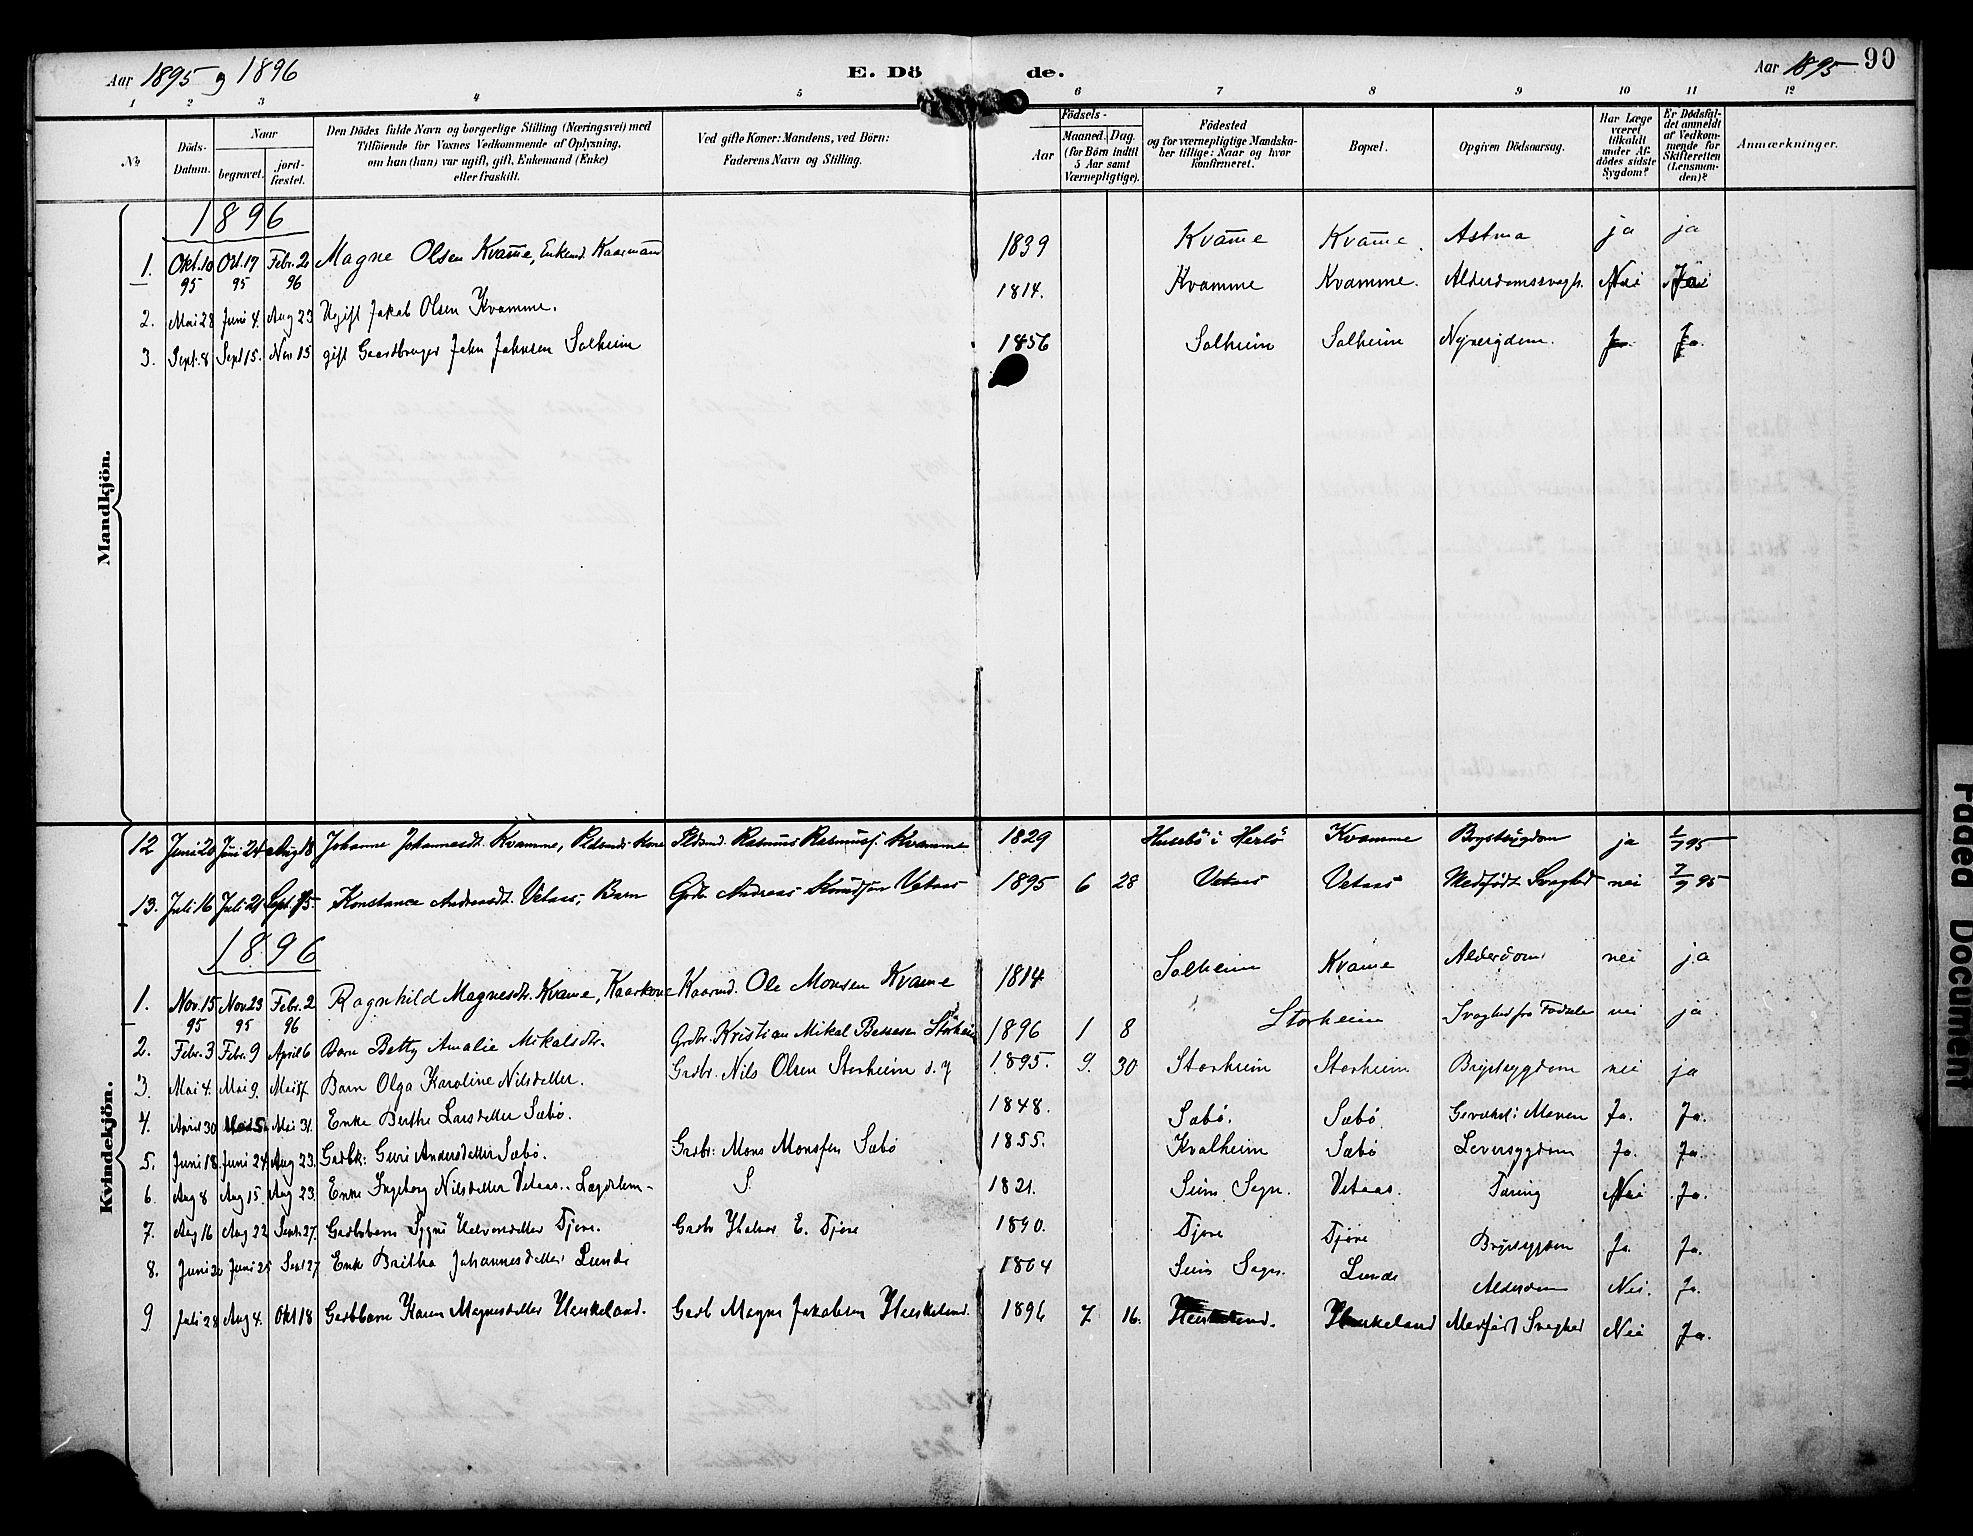 Aar 1895 og 1896
E. Döde.
Aar 1895
90
1 2 3 4 5 6 7 8 9 10 11 12
No
Döds-Datum.
Naar
begravet.
jord-fæstet.
Den Dödes fulde Navn og borgerlige Stilling (Næringsvei) med
Tilföiende for Voxnes Vedkommende af Oplysning,
om han (hun) var ugift, gift, Enkemand (Enke)
eller fraskilt.
Ved gifte Koner: Mandens, ved Börn:
Faderens Navn og Stilling.
Födsels-
Aar
Maaned. Dag.
(for Börn indtil
5 Aar samt
Værnepligtige).
Födested
og for værnepligtige Mandska-
ber tillige: Naar og hvor
konfirmeret.
Bopæl.
Opgiven Dödsaarsag.
Har Læge
været
tilkaldt
under Af-
dödes sidste
Sygdom?
Er Dödsfal-
det anmeldt
af Vedkom-
mende for
Skifteretten
(Lensman-
den)?
Anmærkninger.
Mandkjön.
1896
1. Okt. 10 95 Okt. 17 95 Febr. 2 96 Magne Olsen Kvam̅e, Enkemd. Kaarmand 1839 Kvam̅e Kvam̅e. Astma ja ja
2. Mai 28 Juni 4. Aug 23 Ugift Jakob Olsen Kvamme. 1814. Kvamme Kvamme. Alderdomssvagh. Nei Ja
3. Sept. 8 Sept 15. Nov 15 gift Gaardbruger John Johnsen Solheim 1856 Solheim Solheim Nyresygdom. Ja. Ja.
Kvindekjön.
12 Juni 20 Juni 24 Aug 18 Johanne Johannesdt. Kvamme, Pldsmds kone Pldsmd. Rasmus Rasmuss. Kvamme 1829 Husebö i Herlö Kvamme Brystsygdom ja 1/7 95
13. Juli 16 Juli 21 Sept. 15. Konstance Andreasdt. Vetaas, Barn Gdbr. Andreas Knudsen Vetaas 1895 6 28 Vetaas Vetaas Medfödt Svaghed nei 7/9 95
1896
1. Nov. 15 95 Nov. 23 95 Febr. 2 96 Ragnhild Magnesdtr. Kvam̅e, Kaarkone Kaarmd. Ole Monsen Kvam̅e 1814 Solheim Kvam̅e Alderdom nei ja
2. Febr. 3 Febr. 9 April 6 Barn Betty Amalie Mikalsdtr. Grdbr. Kristian Mikal Storheim 1896 1 8 Storheim Svaghed fra Fødsele nei ja
3. Mai 4. Mai 9. Mai 17. Barn Olga Karoline Nilsdatter. Grdbr. Nils Olsen Storheim d. y 1895. 9. 30 Storheim Storheim Brystsygdom nei ja
4. April 30 Mai 5. Mai 31. Enke Berthe Larsdatter Sæbø. 1848. Sæbø. Sæbø. i Maven Ja. Ja.
5. Juni 18. Juni 24 Aug 23. Grdbk: Guri Andersdatter Sæbø. Grdbr: Mons Monssen Sæbø 1855. Kvalheim Sæbø Leversygdom Ja. Ja.
6. Aug 8 Aug 15. Aug 23. Enke Ingeborg Nilsdatter Vetaas. Lægdslem S. 1821. Seim Sogn. Vetaas. Tæring Nei Ja.
7. Aug 16 Aug 22 Sept 27. Grdbrbarn Sygni Halvorsdatter Fjøre. Grdbr Halvor E. Fjøre 1890. Fjøre Fjøre Brystsygdom Ja. Ja.
8. Juni 20 Juni 25 Sept 27 Enke Britha Johannesdatter Lunde 1804 Seim Sogn. Lunde Alderdom Nei. Ja.
9 Juli 28 Aug 4. Okt 18 Grdbbarn Karen Magnesdatter Henkeland. Grdb Magne Jakobsen Henkeland. 1896 7 16. Henkeland. Henkeland Medfødt Svaghed Nei Ja.
Faded Document